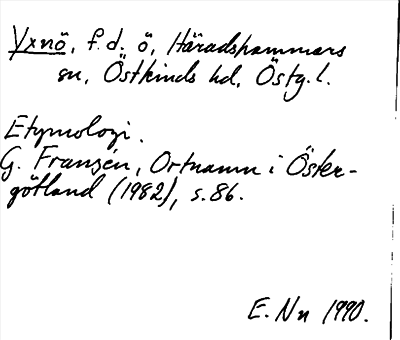 Yxnö, f.d. ö, Häradshammars
sn, Östkinds hd, Östg. l.
Etymologi.
G. Franzén, Ortnamn i Öster-
götland (1982), s. 86.
E. Nn 1990.